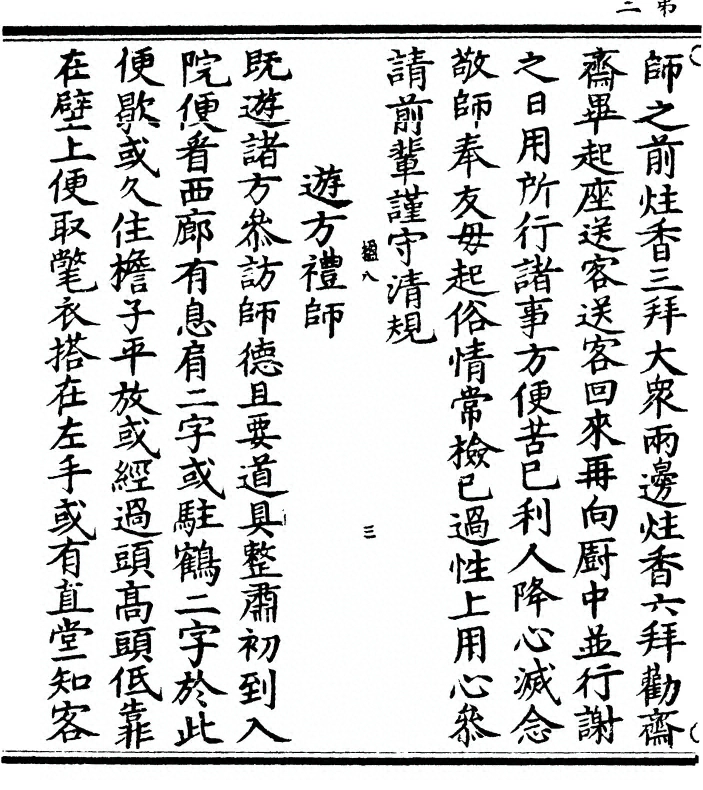 第二
師之前炷香三拜大衆兩邊炷香六拜勸齋
齋畢起座送客送客回來再向厨中並行謝
之日用所行諸事方便苦己利人降心滅念
敬師奉友毋起俗情常檢己過性上用心叅
請前輩謹守清規
楹八
三
遊方禮師
既遊諸方叅訪師德且要道具整肅初到入
院便看西廊有息肩二字或駐鶴二字於此
便歇或久住擔子平放或經過頭高頭低靠
在壁上便取氅衣搭在左手或有直堂知客